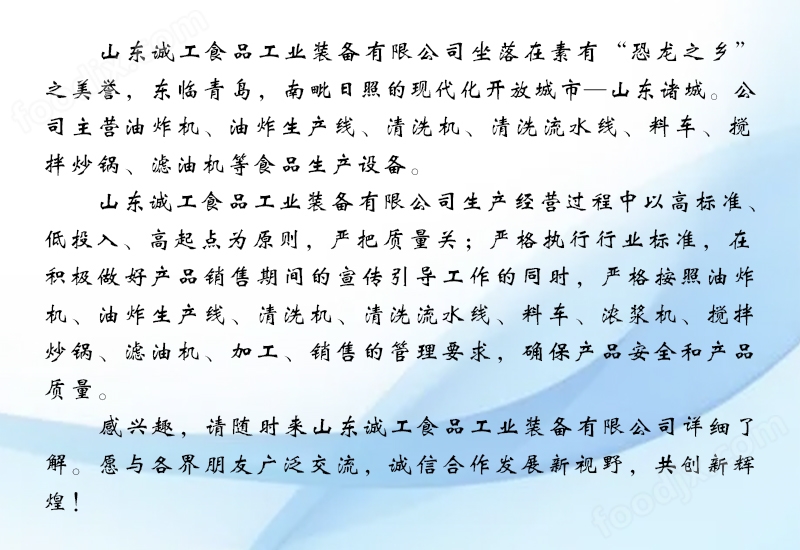 山东诚工食品工业装备有限公司坐落在素有“恐龙之乡”
之美誉，东临青岛，南毗日照的现代化开放城市—山东诸城。公
司主营油炸机、油炸生产线、清洗机、清洗流水线、料车、搅
拌炒锅、滤油机等食品生产设备。
山东诚工食品工业装备有限公司生产经营过程中以高标准、
低投入、高起点为原则，严把质量关；严格执行行业标准，在
积极做好产品销售期间的宣传引导工作的同时，严格按照油炸
机、油炸生产线、清洗机、清洗流水线、料车、浓浆机、搅拌
炒锅、滤油机、加工、销售的管理要求，确保产品安全和产品
质量。
感兴趣，请随时来山东诚工食品工业装备有限公司详细了
解。愿与各界朋友广泛交流，诚信合作发展新视野，共创新辉
煌！